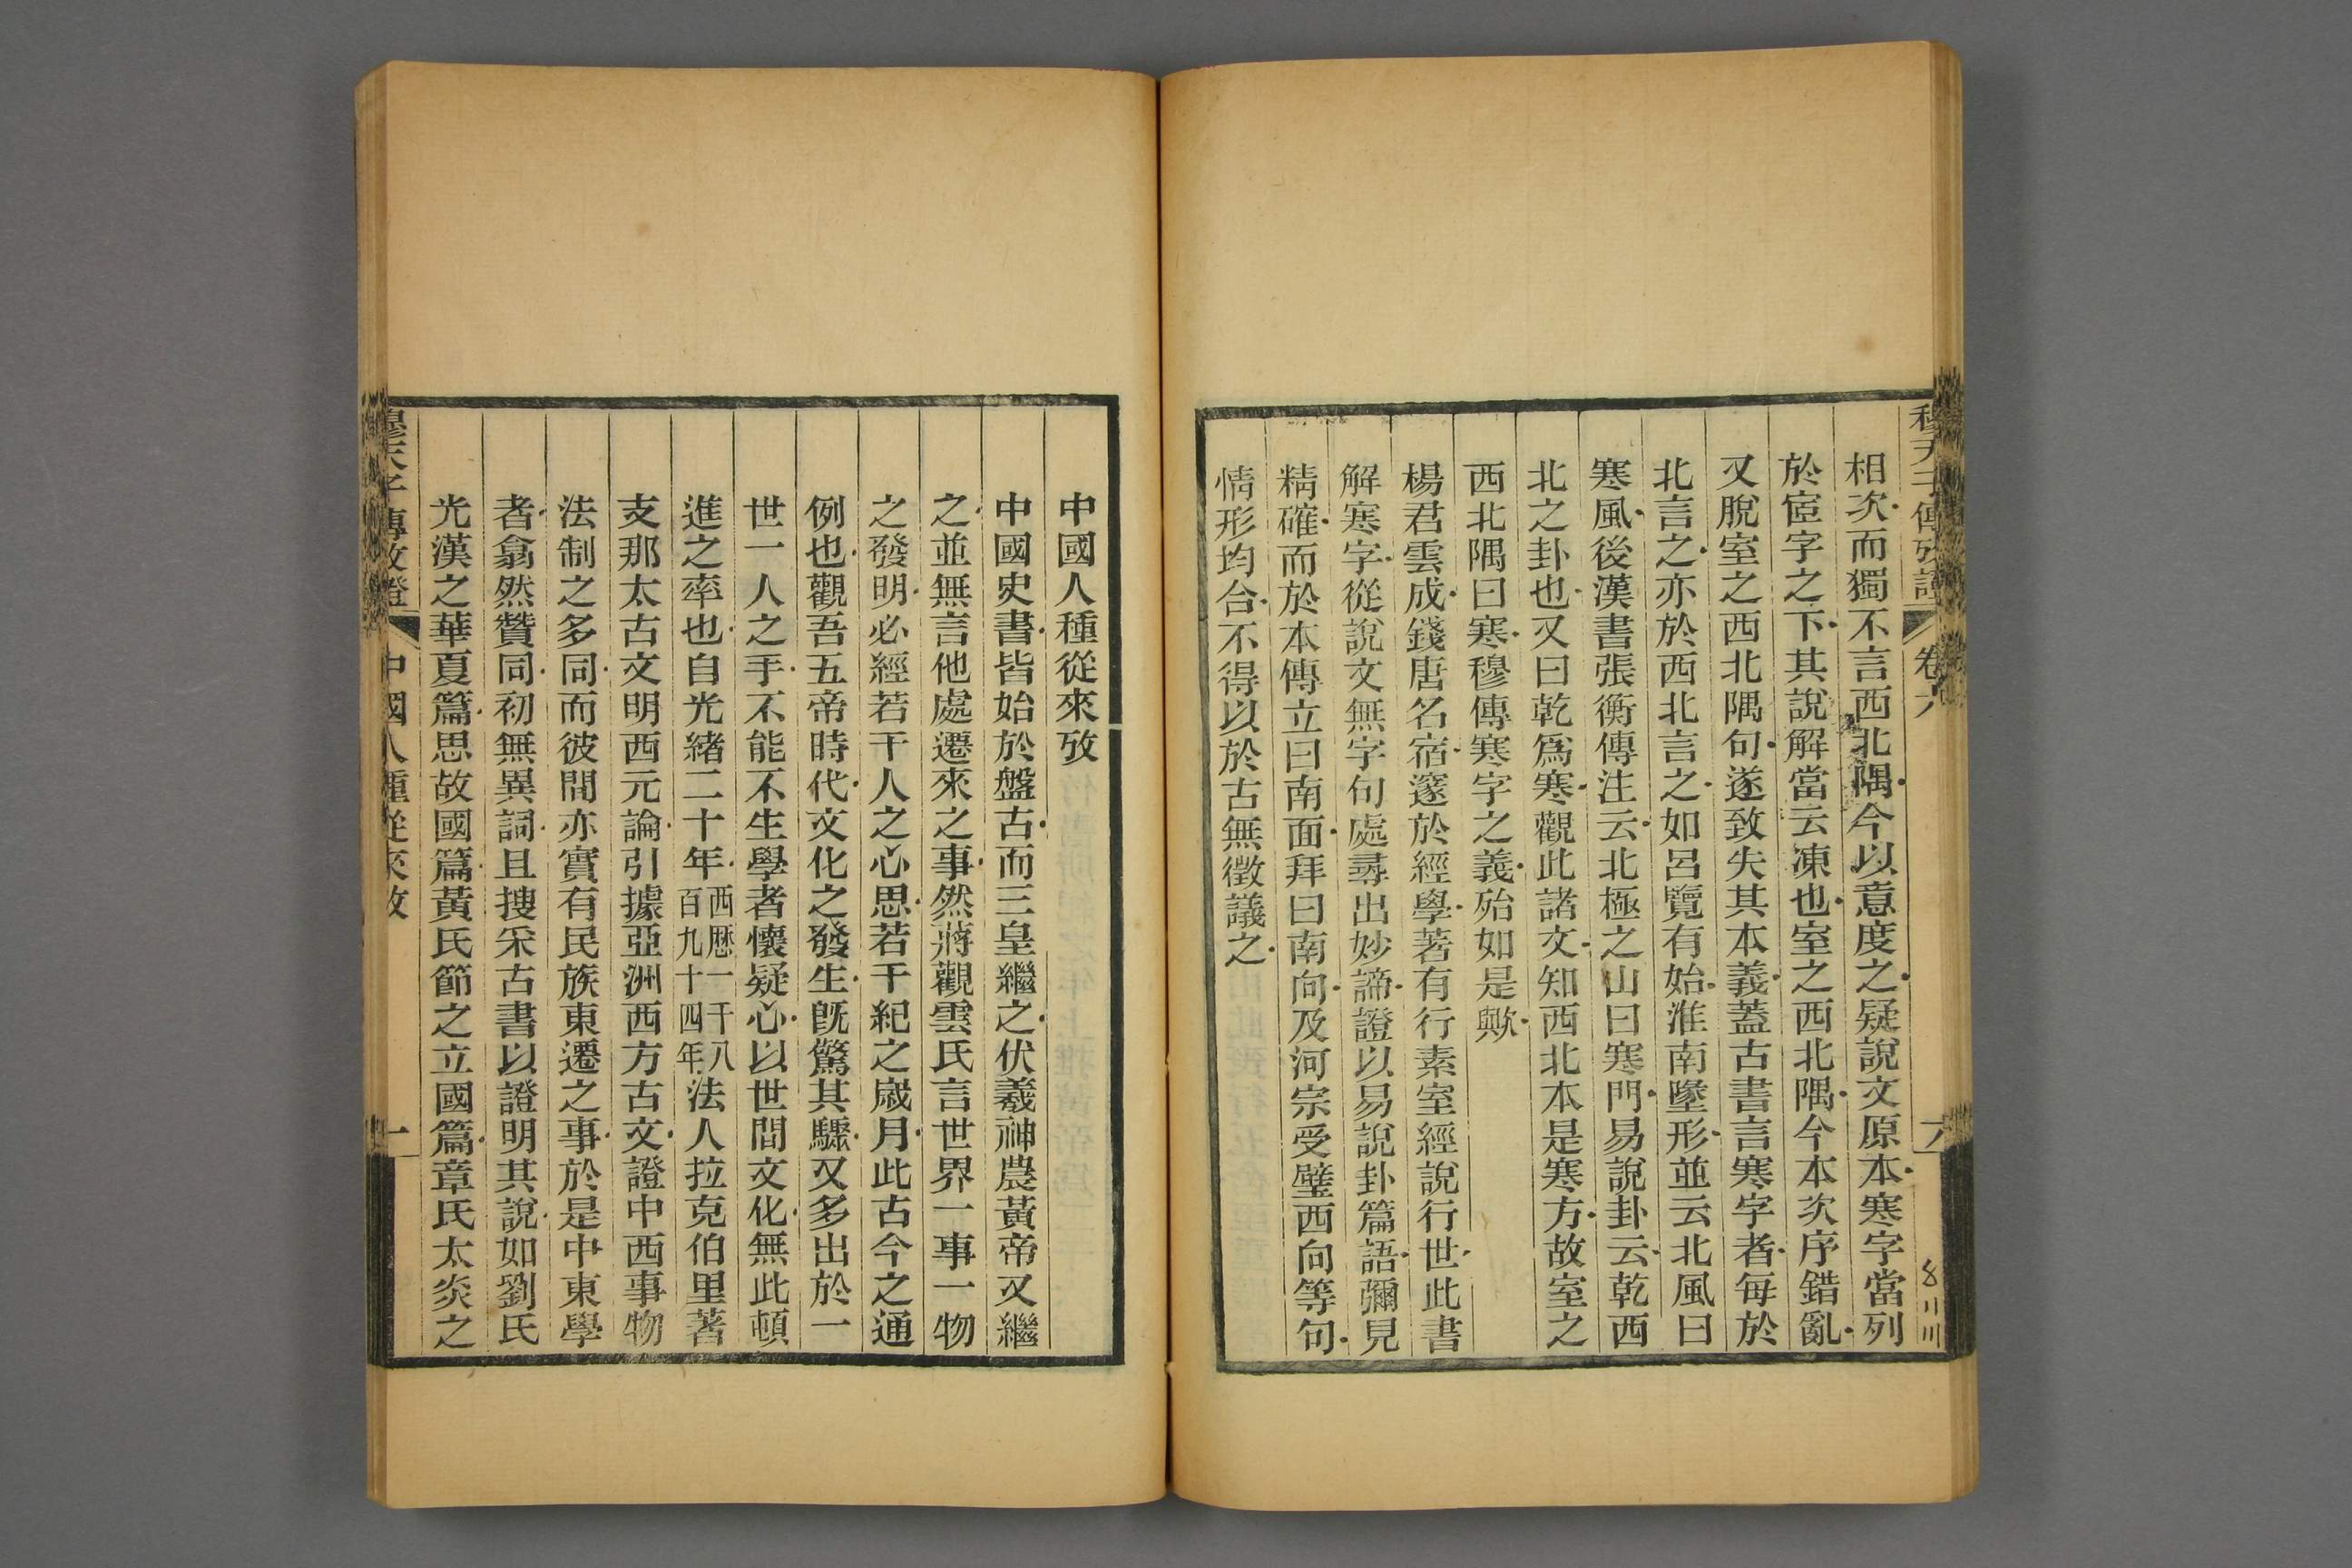 穆天子傳攷證 卷六 六
相次而獨不言西北隅今以意度之疑說文原本寒字當列
於宧字之下其說解當云凍也室之西北隅今本次序錯亂
又脫室之西北隅句遂致失其本義蓋古書言寒字者每於
北言之亦於西北言之如呂覽有始淮南墬形並云北風曰
寒風後漢書張衡傳注云北極之山曰寒門易說卦云乾西
北之卦也又曰乾爲寒觀此諸文知西北本是寒方故室之
西北隅曰寒穆傳寒字之義殆如是歟
楊君雲成錢唐名宿邃於經學著有行素室經說行世此書
解寒字從說文無字句處尋出妙諦證以易說卦篇語彌見
精確而於本傳立曰南面拜曰南向及河宗受璧西向等句
情形均合不得以於古無徵議之
中國人種從來攷
中國史書皆始於盤古而三皇繼之伏羲神農黃帝又繼
之並無言他處遷來之事然蔣觀雲氏言世界一事一物
之發明必經若干人之心思若干紀之歲月此古今之通
例也觀吾五帝時代文化之發生旣驚其驟又多出於一
世一人之手不能不生學者懷疑心以世間文化無此頓
進之率也自光緒二十年西曆一千八百九十四年法人拉克伯里著
支那太古文明西元論引據亞洲西方古文證中西事物
法制之多同而彼間亦實有民族東遷之事於是中東學
者翕然贊同初無異詞且搜采古書以證明其說如劉氏
光漢之華夏篇思故國篇黃氏節之立國篇章氏太炎之
穆天子傳攷證 中國人種從來攷 一